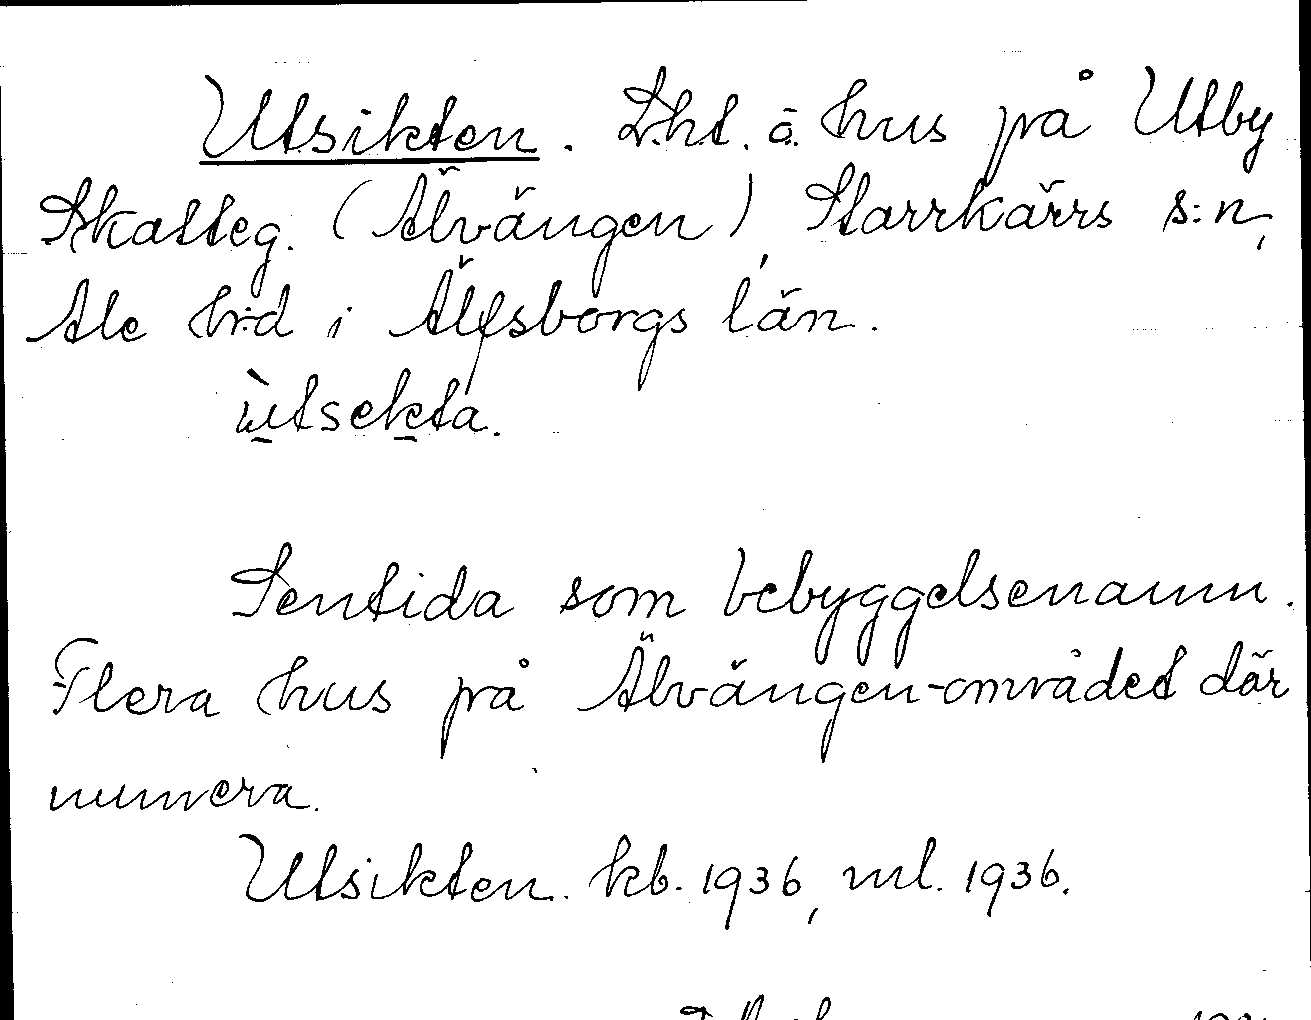 Utsikten. L.ht. å. hus på Utby
Skatteg. (Älvängen), Starrkärrs s:n,
Ale h:d i Älfsborgs län.
ùtsekta.
Sentida som bebyggelsenamn.
Flera hus på Älvängen-området där
numera.
Utsikten. kb. 1936, ml. 1936.